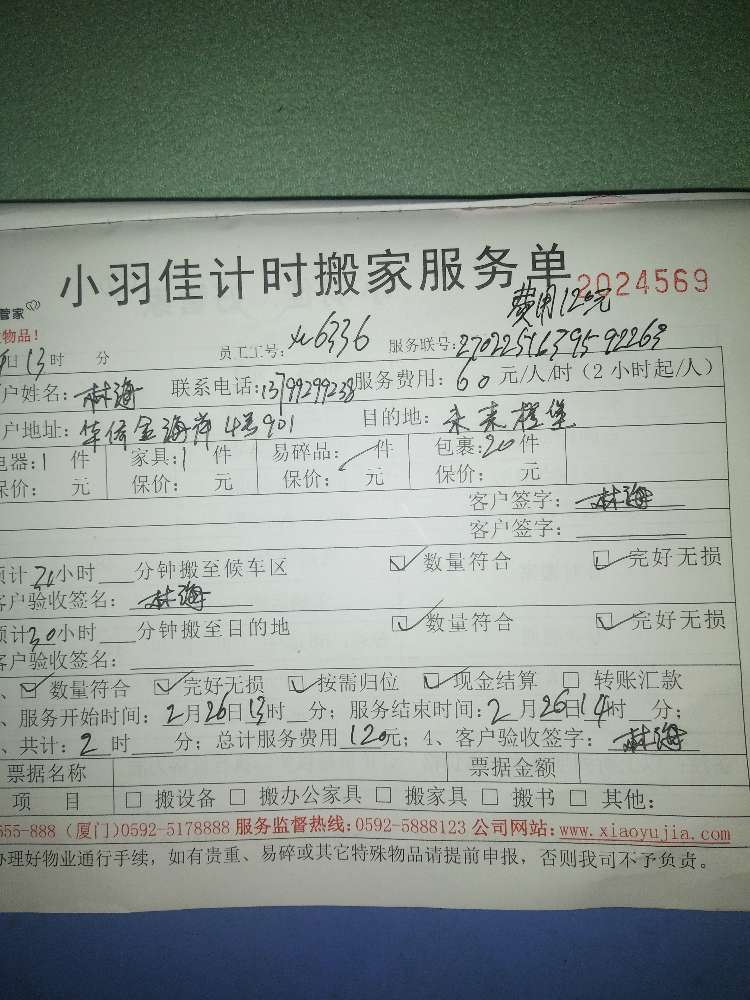 小羽佳计时搬家服务单 2024569
管家
物品！
费用120元
日13时 分 员工工号：xc6336 服务联号：
户姓名：林海 联系电话：13799299238 服务费用：60元/人/时（2小时起/人）
户地址：华侨金海岸4号901 目的地：未来橙堡
电器：1 件 家具：1 件 易碎品： 件 包裹：20件
保价： 元 保价： 元 保价： 元 保价： 元
客户签字：林海
客户签字：
预计 小时 分钟搬至候车区 ☑ 数量符合 ☑ 完好无损
客户验收签名：林海
预计30小时 分钟搬至目的地 ☑ 数量符合 ☑ 完好无损
客户验收签名：
、☑ 数量符合 ☑ 完好无损 ☑ 按需归位 ☑ 现金结算 □ 转账汇款
、服务开始时间：2月26日13时 分；服务结束时间：2月26日14时 分；
、共计：2时 分；总计服务费用120元；4、客户验收签字：林海
票据名称 票据金额
项 目 □ 搬设备 □ 搬办公家具 □ 搬家具 □ 搬书 □ 其他：
555-888（厦门）0592-5178888 服务监督热线：0592-5888123 公司网站：www.xiaoyujia.com
办理好物业通行手续，如有贵重、易碎或其它特殊物品请提前申报，否则我司不予负责。